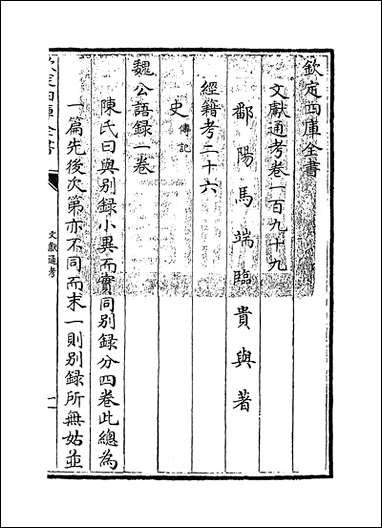 欽定四庫全書
文獻通考卷一百九十九
鄱陽馬端臨貴與著
經籍考二十六
史傳記
魏公語録一卷
陳氏曰與别録小異而實同别録分四卷此總為
一篇先後次第亦不同而末一則别録所無姑並
欽定四庫全書
文獻通考
一